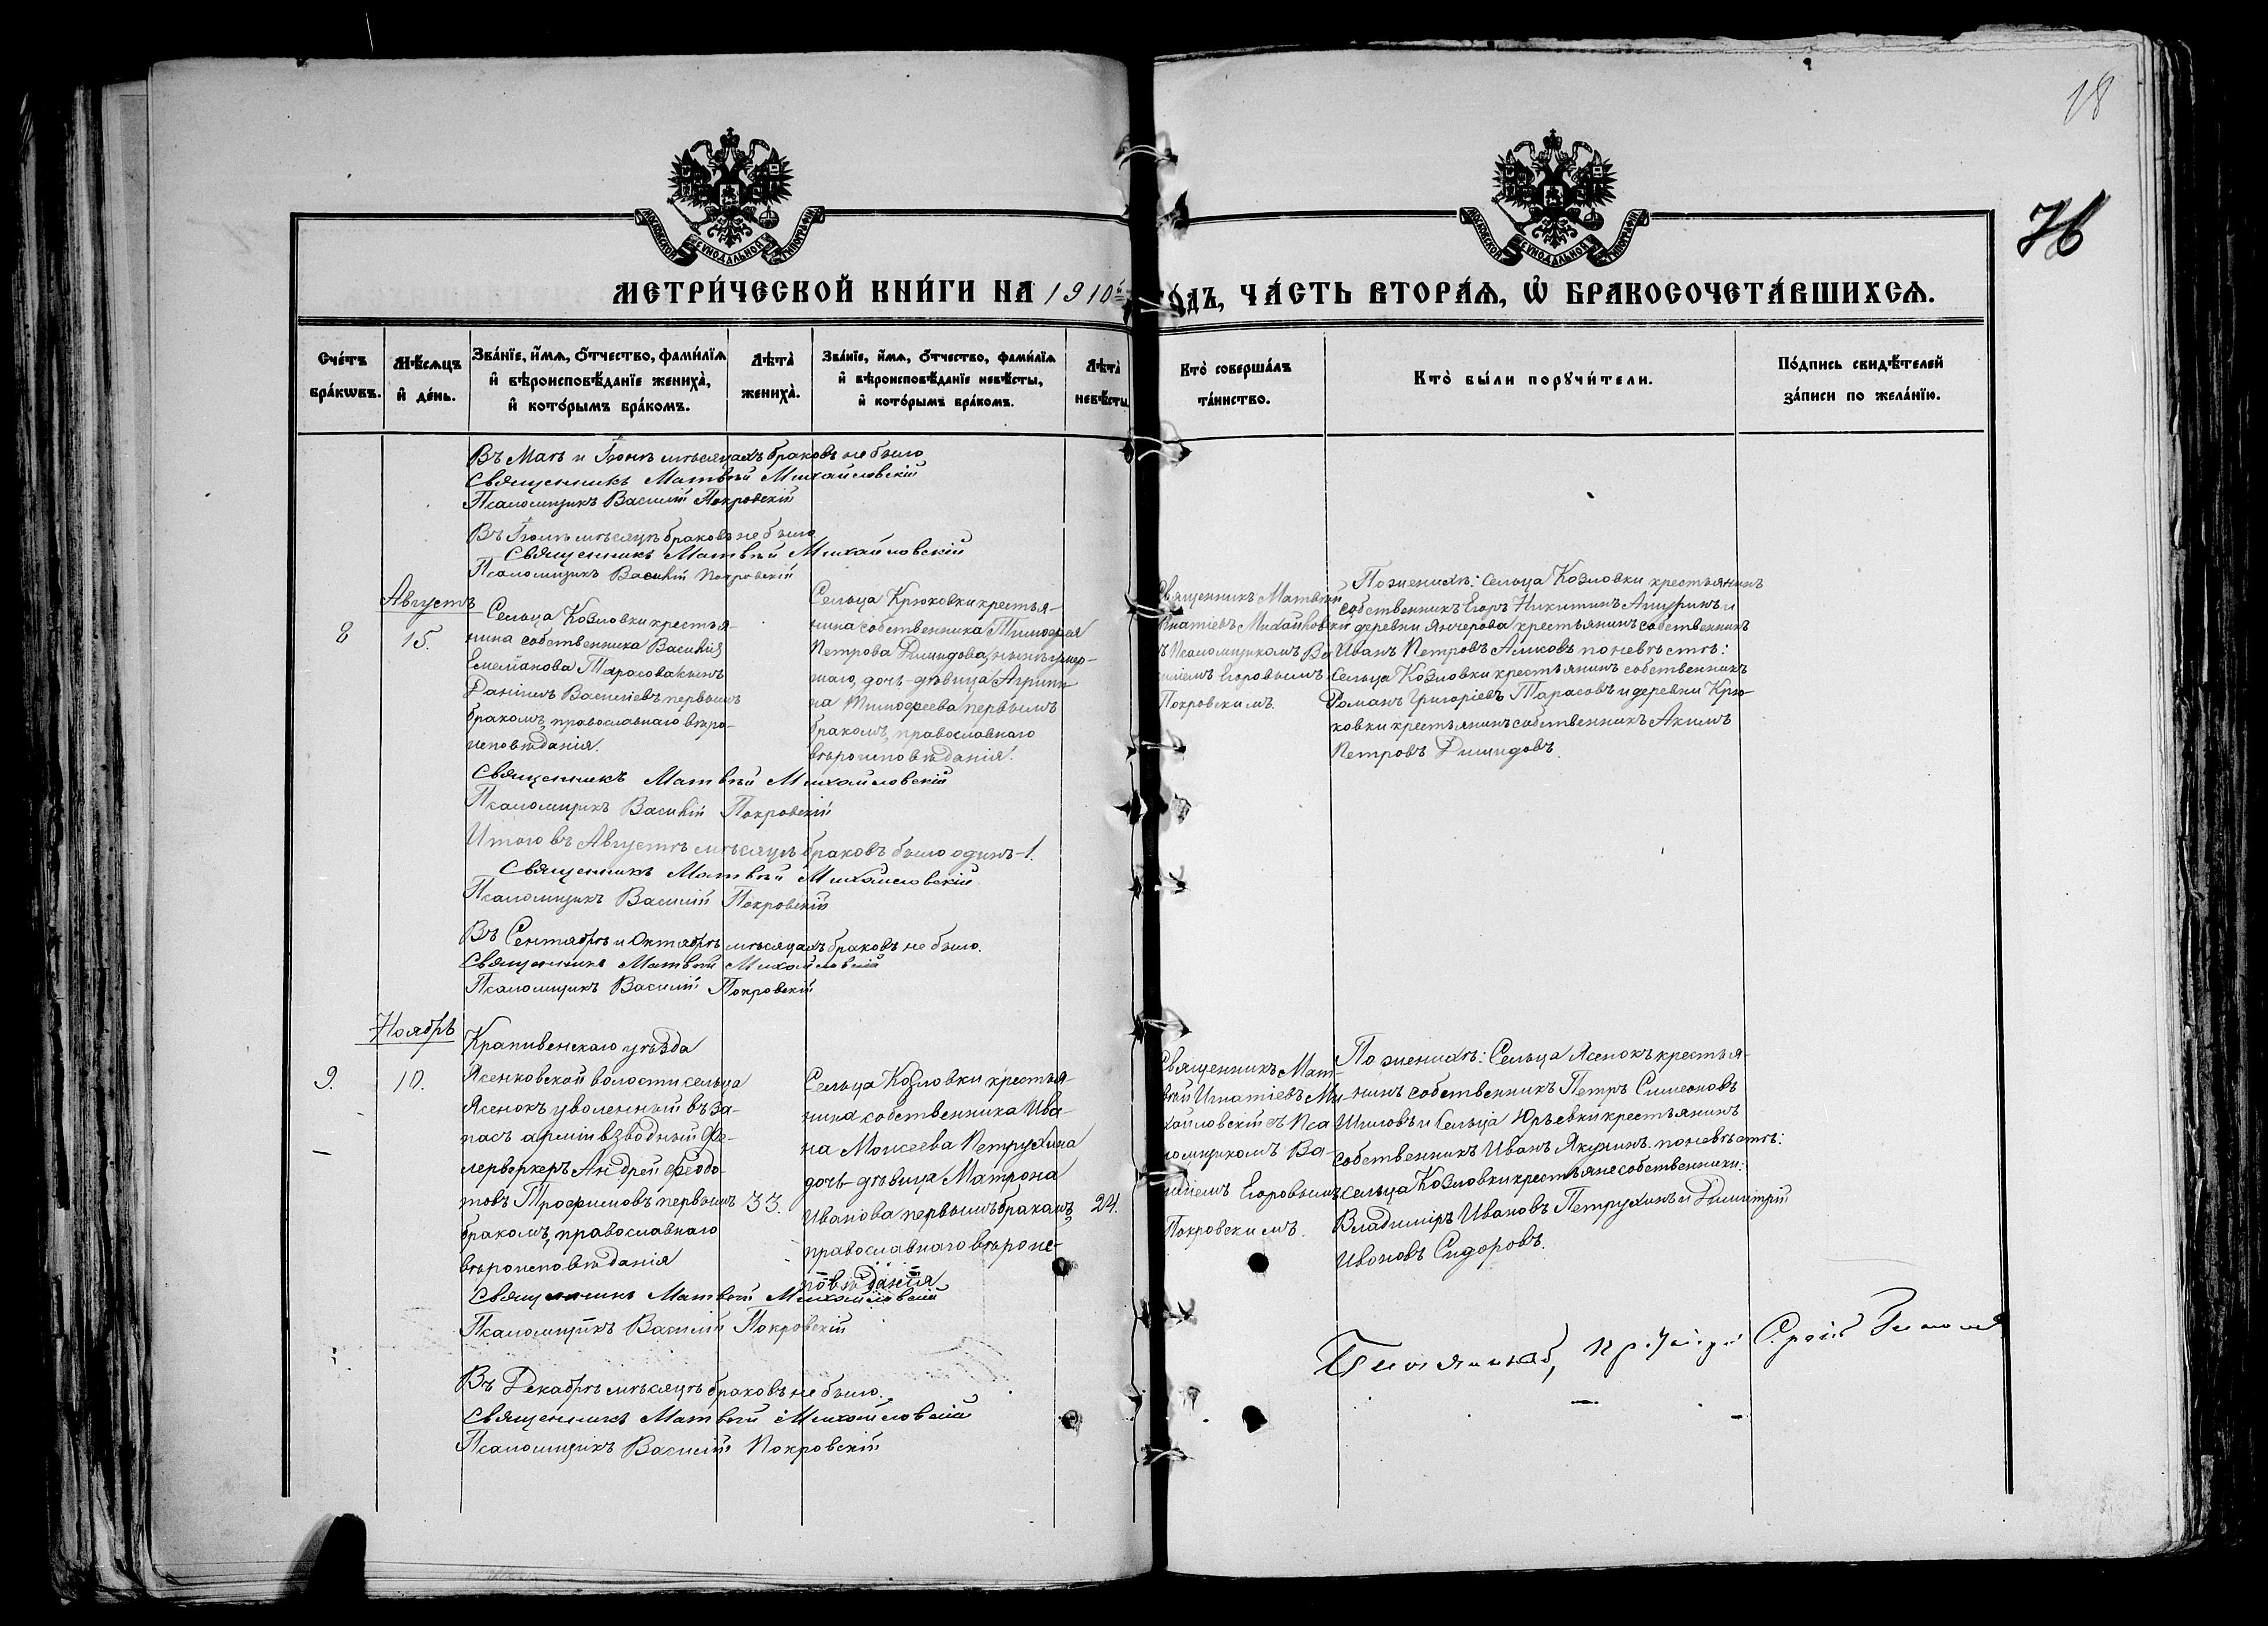 18
76
МОСКОВСКОЙ СѴНОДАЛЬНОЙ ТИПОГРАФІИ
МОСКОВСКОЙ СѴНОДАЛЬНОЙ ТИПОГРАФІИ
МЕТРИ́ЧЕСКОЙ КНИ́ГИ НА 1910й ГО́ДЪ, ЧА́СТЬ ВТОРА́Ѧ, Ѡ҆ БРАКОСОЧЕТА́ВШИХСѦ.
Сче́тъ бра́кѡвъ.
Мѣ́сѧцъ и҆ де́нь.
Зва́нїе, и҆́мѧ, ѻ҆́тчество, фами́лїѧ
и҆ вѣроисповѣ́данїе жениха̀,
и҆ кото́рымъ бра́комъ.
Лѣта̀ жениха̀.
Зва́нїе, и҆́мѧ, ѻ҆́тчество, фами́лїѧ
и҆ вѣроисповѣ́данїе невѣ́сты,
и҆ кото́рымъ бра́комъ.
Лѣта̀ невѣ́сты.
Кто̀ соверша́лъ та́инство.
Кто̀ бы́ли порꙋчи́тели.
По́дпись свидѣ́телей
за́писи по жела́нїю.
Въ Маѣ и Іюнѣ мѣсяцахъ браковъ не было
Священникъ Матвѣй Михайловскій
Псаломщикъ Василій Покровскій
Въ Іюлѣ мѣсяцѣ браковъ не было
Священникъ Матвѣй Михайловскій
Псаломщикъ Василій Покровскій
Августъ
8
15.
Сельца Козловки крестья-
нина собственника Василія
Емеліанова Тарасова сынъ
Даніилъ Василіевъ первымъ
бракомъ, православнаго вѣро-
исповѣданія.
Сельца Крюковки крестья-
нина собственника Тимофея
Петрова Димидова, нынѣ умер-
шаго, дочь-дѣвица Агрипи-
на Тимофеева первымъ
бракомъ, православнаго
вѣроисповѣданія.
Священникъ Матвѣй
Игнатіевъ Михайловскій
съ Псаломщикомъ Ва-
силіемъ Егоровымъ
Покровскимъ.
По женихѣ: Сельца Козловки крестьянинъ
собственникъ Егоръ Никитинъ и
деревни Янчерова крестьянинъ собственникъ
Иванъ Петровъ Алимовъ по невѣстѣ:
Сельца Козловки крестьянинъ собственникъ
Романъ Григоріевъ Тарасовъ и деревни Крю-
ковки крестьянинъ собственникъ Акимъ
Петровъ Димидовъ.
Священникъ Матвѣй Михайловскій
Псаломщикъ Василій Покровскій
Итого въ Августѣ мѣсяцѣ браковъ было одинъ-1.
Священникъ Матвѣй Михайловскій
Псаломщикъ Василій Покровскій
Въ Сентябрѣ и Октябрѣ мѣсяцахъ браковъ не было.
Священникъ Матвѣй Михайловскій
Псаломщикъ Василій Покровскій
Ноябрь
9.
10.
Крапивенскаго уѣзда
Ясенковской волости сельца
Ясенокъ уволенный въ за-
пасъ арміи взводный Фе-
ерверкеръ Андрей Ѳеодо-
товъ Трофимовъ первымъ
бракомъ, православнаго
вѣроисповѣданія
33.
Сельца Козловки крестья-
нина собственника Ива-
на Моисеева Петрухина
дочь-дѣвица Матрона
Иванова первымъ бракомъ,
православнаго вѣроис-
повѣданія
24.
Священникъ Мат-
вѣй Игнатіевъ Ми-
хайловскій съ Пса-
ломщикомъ Ва-
силіемъ Егоровымъ
Покровскимъ.
По женихѣ: Сельца Ясенокъ крестья-
нинъ собственникъ Петръ Симеоновъ
Шиловъ и Сельца Юрьевки крестьянинъ
собственникъ Иванъ Якунинъ. по невѣстѣ:
сельца Козловки крестьяне собственники:
Владиміръ Ивановъ Петрухинъ и Димитрій
Ивановъ Сидоровъ.
Священникъ Матвѣй Михайловскій
Псаломщикъ Василій Покровскій
Въ Декабрѣ мѣсяцѣ браковъ не было.
Священникъ Матвѣй Михайловскій
Псаломщикъ Василій Покровскій